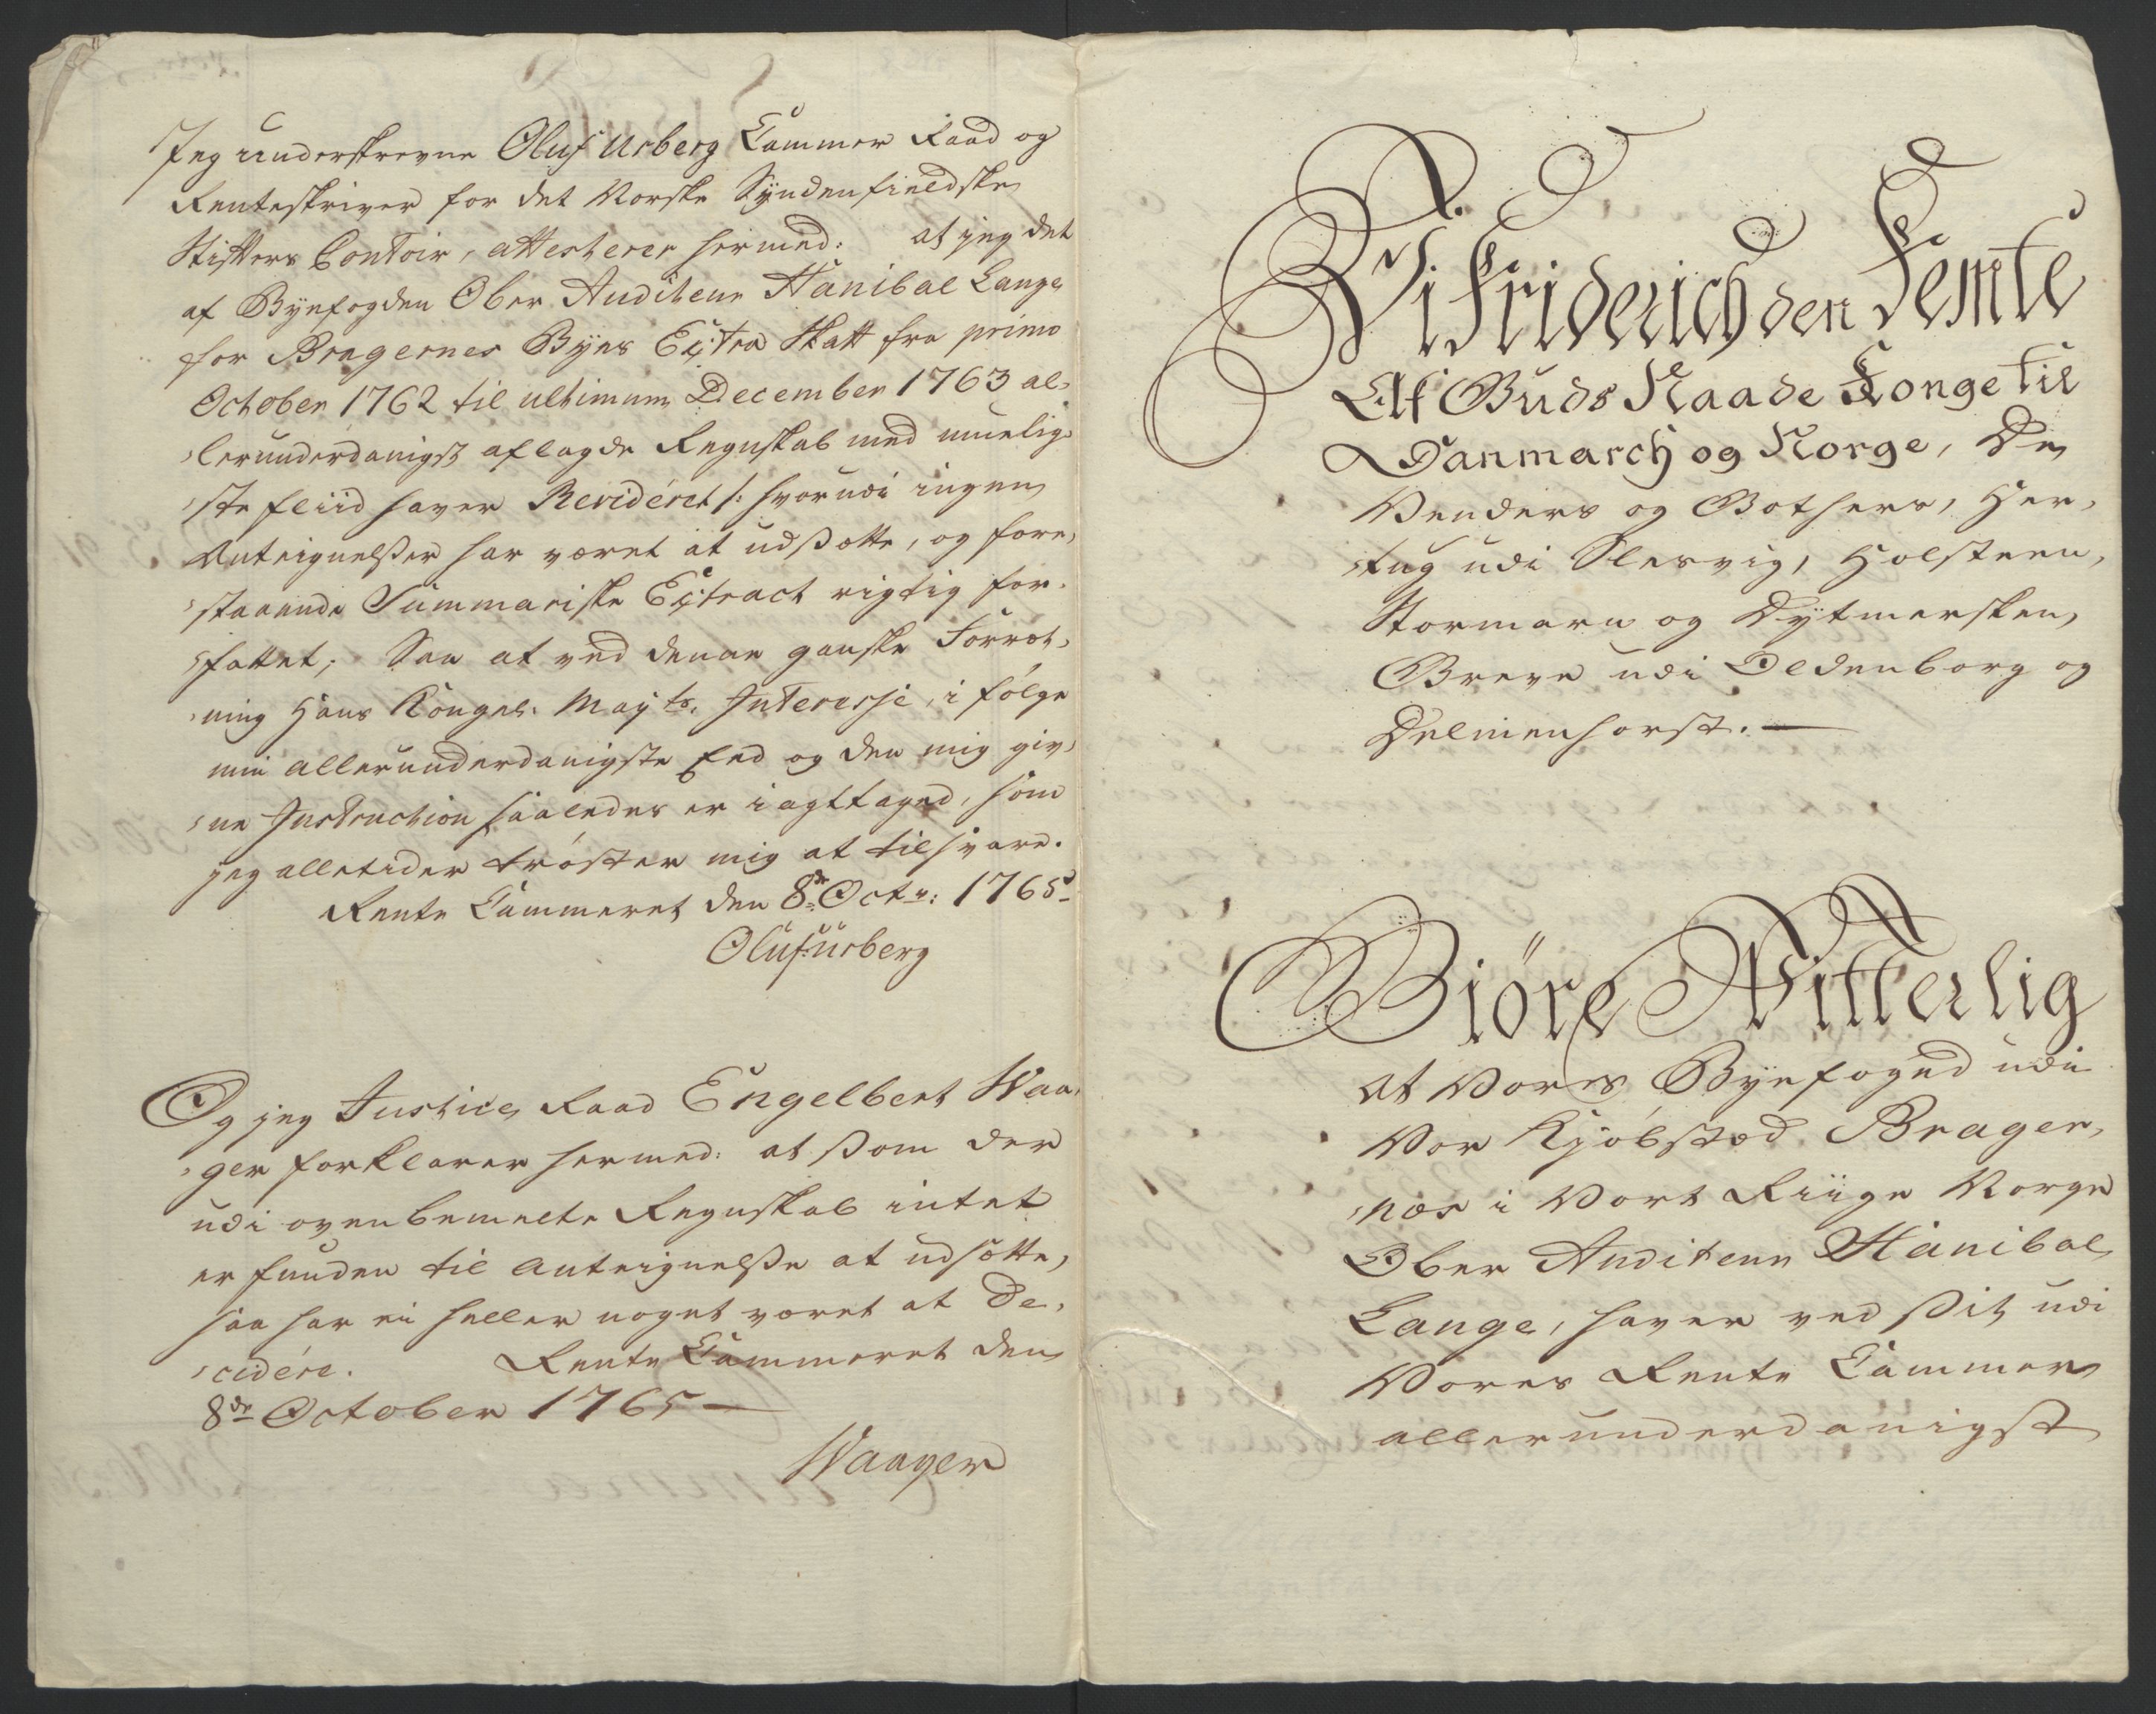 Jeg underskrevne Oluf Urberg Cammer Raad og
Renteskriver for det Norske Syndenfieldske
Stifters Contoir, attesterer hermed: at jeg det
af Byefogden Ober Auditeur Hanibal Lange
for Bragernes Byes Extra Skatt fra primo
October 1762 til ultimum December 1763 al-
lerunderdanigst aflagde Regnskab med muelig-
ste fliid haver Revideret /: hvorudi ingen
Anteignelsser har været at udsætte, og fore-
staaende Summariske Extract rigtig for-
fattet; Saa at ved denne ganske Forret-
ning Hans Kongel: Mayts. Interesse, i følge
min allerunderdanigste Eed og den mig giv-
ne Instruction saaledes er iagttaged, som
jeg alletider trøster mig at tilsvare.
Rente Cammeret den 8de Octr: 1765
Oluf Urberg
Og jeg Justice Raad Engelbert Waa-
ger forklarer hermed: at som der
udi ovenbemelte Regnskab intet
er funden til Anteignelsse at udsætte,
saa har ei heller noget været at De-
cidére. Rente Cammeret den
8de October 1765
Waager
Vi Friderich den Femte
Af Guds Naade Konge til
Danmarch og Norge, De
Venders og Gothers, Her-
tug udi Slesvig, Holsteen,
Stormarn og Dytmersken,
Greve udi Oldenborg og
Delmenhorst.
Giöre Vitterlig
at Vores Byefoged udi
Vor Kjöbsted Brager-
næs i Vort Riige Norge
Ober Auditeur Hanibal
Lange, haver ved sit udi
Vores Rente Cammer
allerunderdanigst